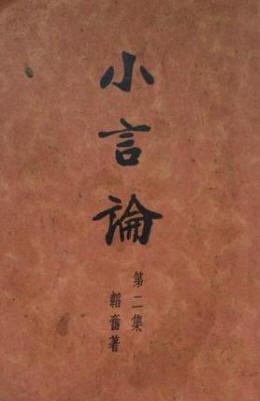 小言論
第二集
韜奮著